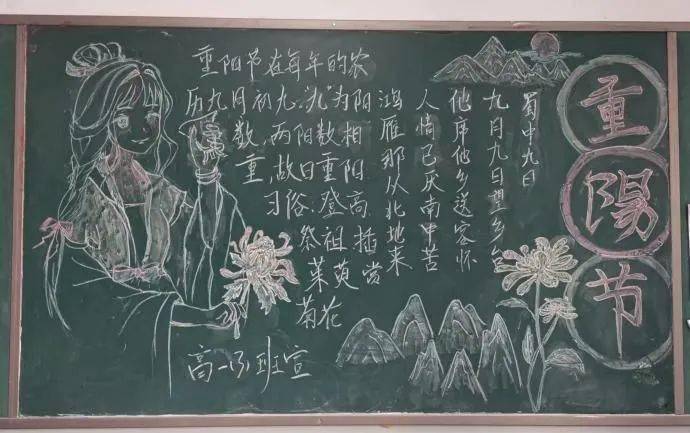 重陽节
蜀中九日
九月九日望乡台
他席他乡送客怀
人情已厌南中苦
鸿雁那从北地来
重阳节在每年的农
历九月初九."九"为阳
数,两阳数相
重,故曰重阳
习俗:登高
祭祖 插
茱萸 赏
菊花
班宣